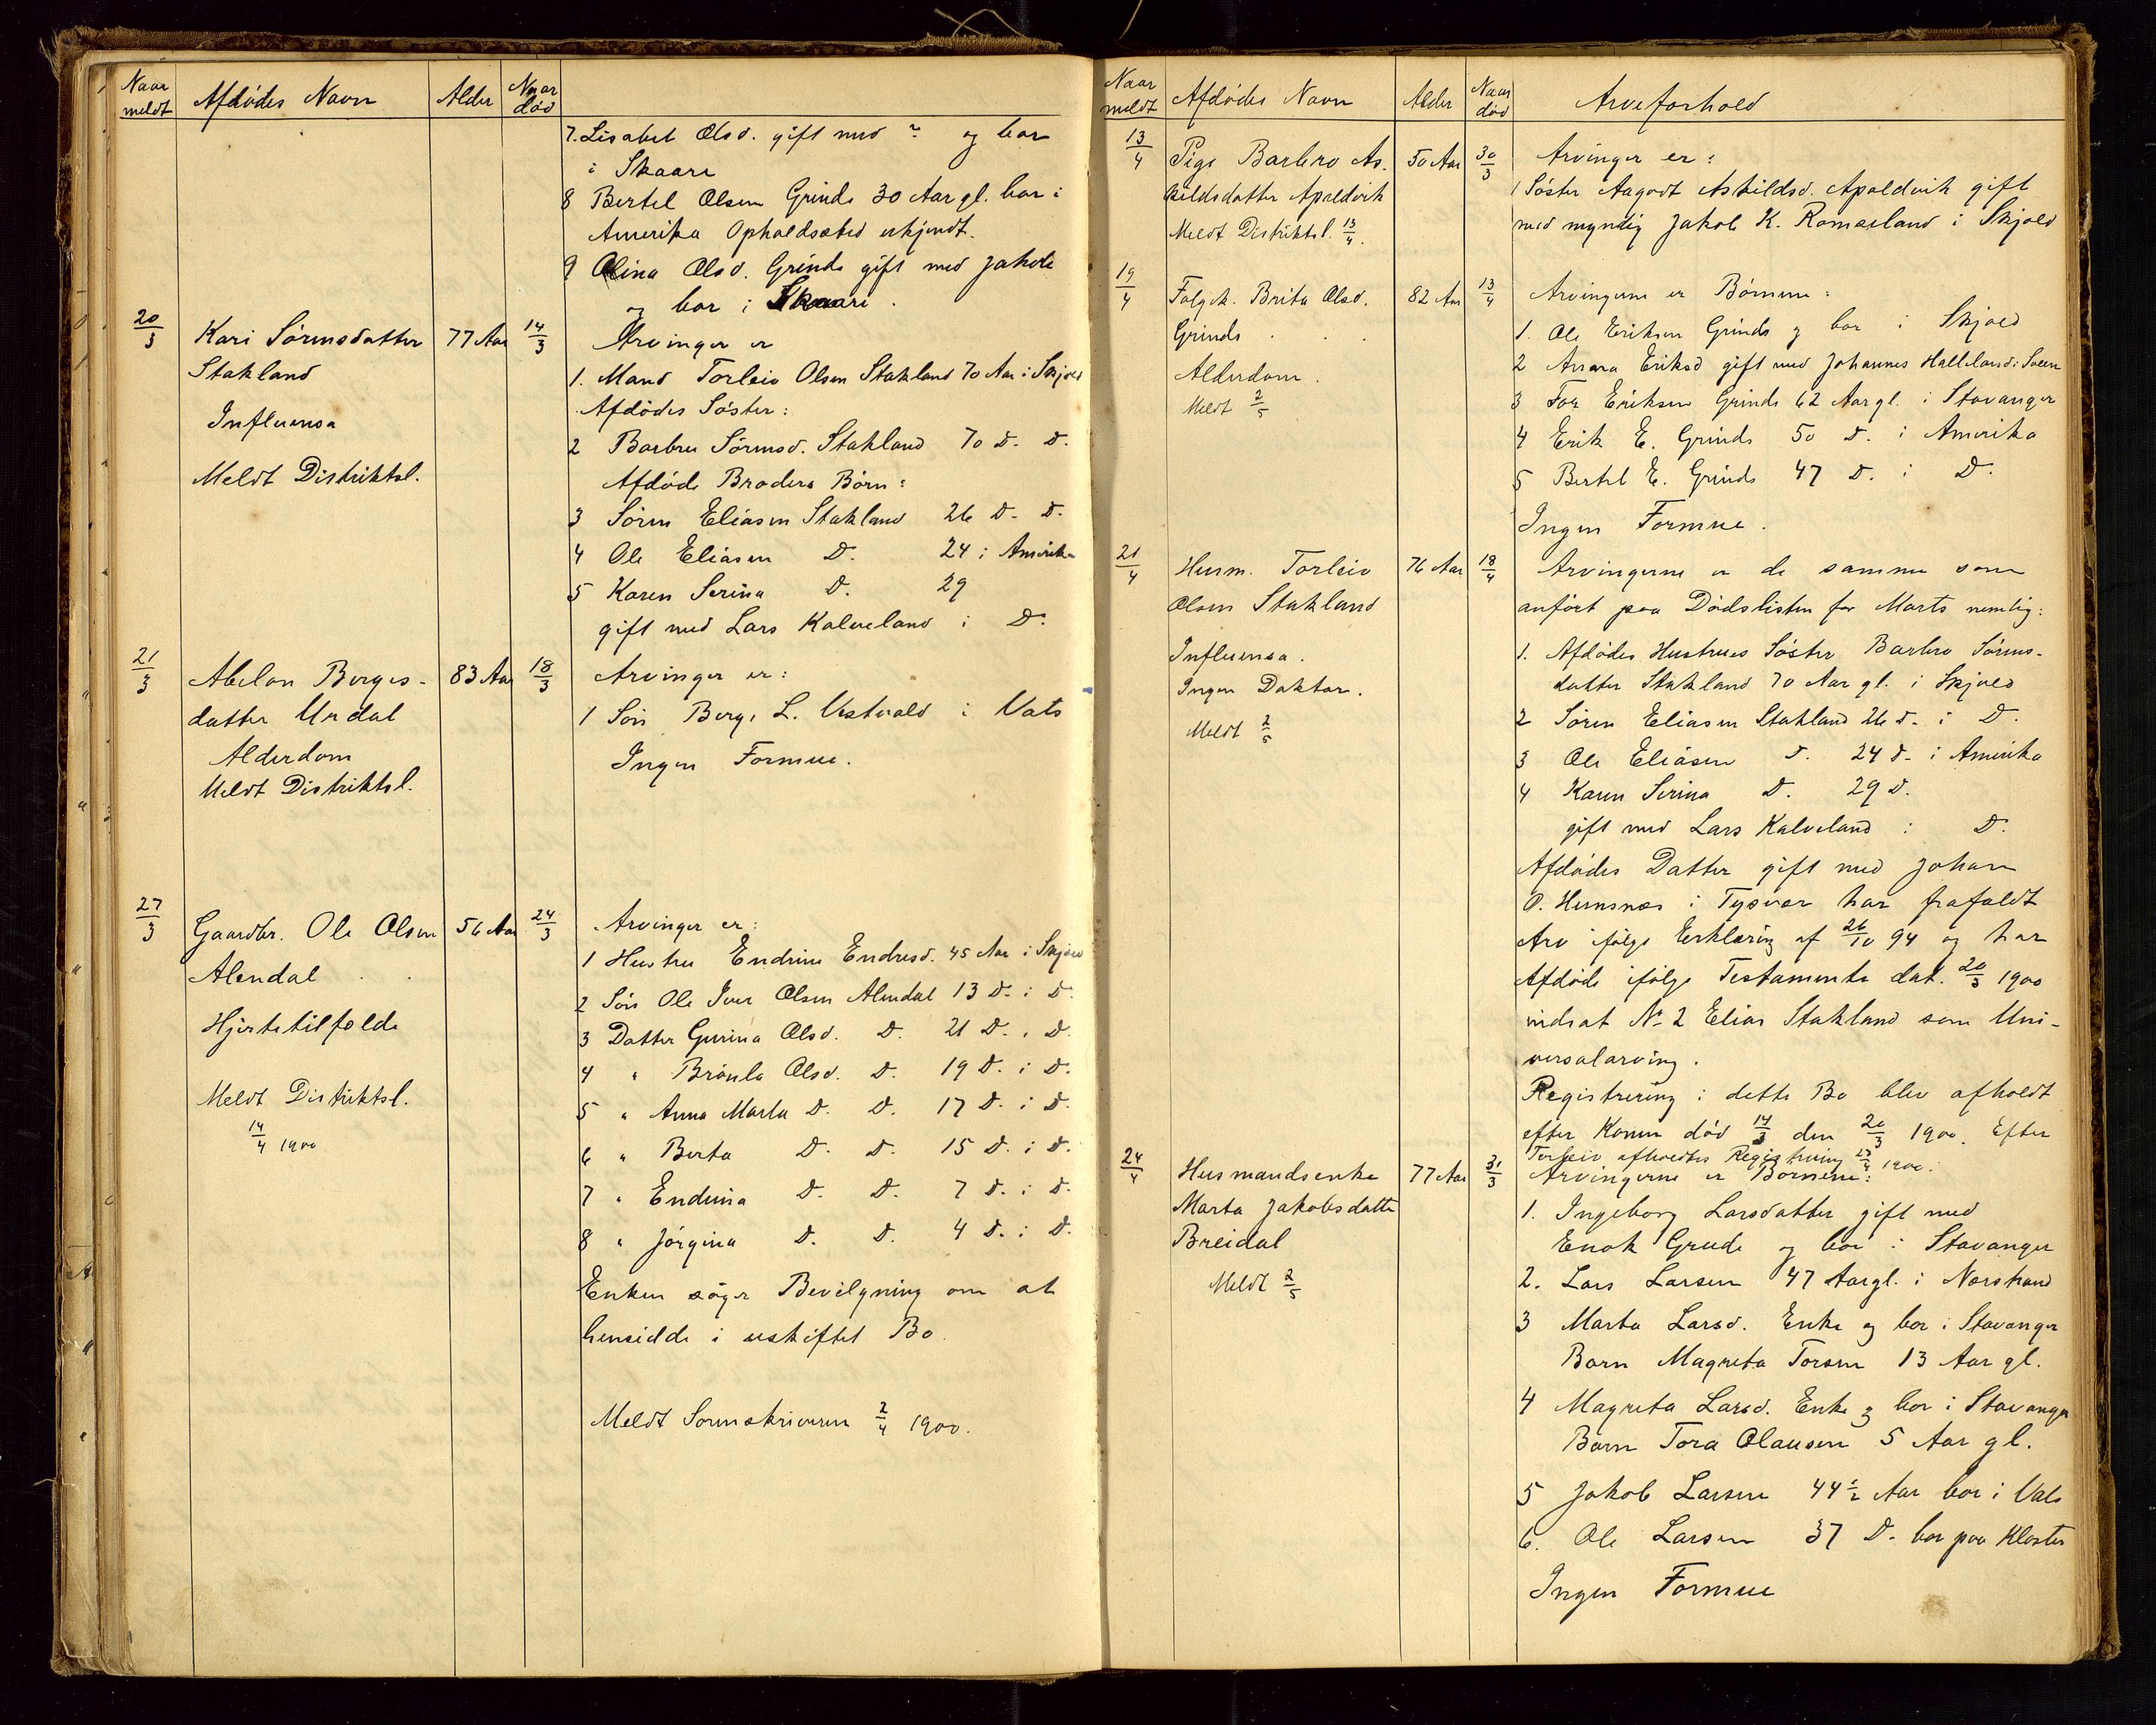 Naar meldt Afdødes Navn Alder Naar død
7. Lisabet Olsd. gift med ? og bor
i Skaare
8 Bertel Olsen Grinde 30 Aar gl. bor i
Amerika Opholdssted ukjendt.
9 Olina Olsd. Grinde gift med Jakob
og bor i Skaare.
20/3 Kari Sørensdatter 77 Aar 14/3 Arvinger er
Stakland
1. Mand Torleiv Olsen Stakland 70 Aar i Skjold
Afdødes Søster:
Influensa
2 Barbru Sørensd. Stakland 70 D. D.
Meldt Distriktsl.
Afdøde Broders Børn:
3 Søren Eliasen Stakland 26 D. D.
4 Ole Eliasen D. 24 i Amerika
5 Karen Serina D. 29
gift med Lars Kalveland i D.
21/3 Abelon Berges- 83 Aar 18/3 Arvinger er:
datter Urdal
1 Søn Berge L. Vestvold i Vats
Alderdom
Ingen Formue.
Meldt Distriktsl.
27/3 Gaardbr. Ole Olsen 56 Aar 24/3 Arvinger er:
1 Hustru Endrine Endresd. 45 Aar i Skjold
Alendal
2 Søn Ole Iver Olsen Alendal 13 D. i D.
Hjertetilfælde
3 Datter Gurina Olsd. D. 21 D. i D.
4 " Brønla Olsd. D. 19 D. i D.
Meldt Distriktsl.
5 " Anna Marta D. D. 17 D. i D.
14/4 1900
6 " Berta D. D. 15 D. i D.
7 " Endrina D. D. 7 D. i D.
8 " Jørgina D. D. 4 D. i D.
Enken søger Bevilgning om at
hensidde i uskiftet Bo.
Meldt Sorenskriveren 2/4 1900.
Naar meldt Afdødes Navn Alder Naar død Arveforhold
13/4 Pige Barbro As- 50 Aar 30/3 Arvinger er:
keldsdatter Apeldvik
1 Søster Aagodt Askildsd. Apeldvik gift
med myndig Jakob K. Romseland i Skjold
Meldt Distriktsl. 13/4.
19/4 Folgek. Brita Olsd. 82 Aar 13/4 Arvingerne er Børnene:
Grinde
1. Ole Eriksen Grinde og bor i Skjold
Alderdom.
2 Anna Eriksd gift med Johannes Halleland i Sveen
Meldt 2/5
3 Tor Eriksen Grinde 62 Aar gl. i Stavanger
4 Erik E. Grinde 50 D. i Amerika
5 Bertel E. Grinde 47 D. i D.
Ingen Formue.
21/4 Husm. Torleiv 76 Aar 18/4 Arvingerne er de samme som
Olsen Stakland
anført paa Dødslisten for Marts nemlig:
Influensa.
1. Afdødes Hustrues Søster Barbro Sørens-
Ingen Doktor.
datter Stakland 70 Aar gl. i Skjold
Meldt 2/5
2 Søren Eliasen Stakland 26 D. i D.
3 Ole Eliasen D. 24 D. i Amerika
4 Karen Serina D. 29 D.
gift med Lars Kalveland i D.
Afdødes Datter gift med Johan
O. Hunsnes i Tysvær har frafaldt
Arv ifølge Erklæring af 26/10 94 og har
Afdøde ifølge Testamente dat. 20/3 1900
indsat No 2 Elias Stakland som Uni-
versalarving.
Registrering i dette Bo blev afholdt
efter Konen død 14/3 den 20/3 1900. Efter
Torleiv afholdtes Registrering 23/4 1900.
24/4 Husmandsenke 77 Aar 31/3 Arvingerne er Børnene:
Marta Jakobsdatter
1. Ingeborg Larsdatter gift med
Breidal
Enok Grude og bor i Stavanger
Meldt 2/5
2. Lars Larsen 47 Aar gl. i Narstrand
3 Marta Larsd. Enke og bor i Stavanger
Barn Magreta Torsen 13 Aar gl.
4 Magreta Larsd. Enke og bor i Stavanger
Barn Tora Olausen 5 Aar gl.
5 Jakob Larsen 44½ Aar bor i Vats
6. Ole Larsen 37 D. bor paa Kloster
Ingen Formue